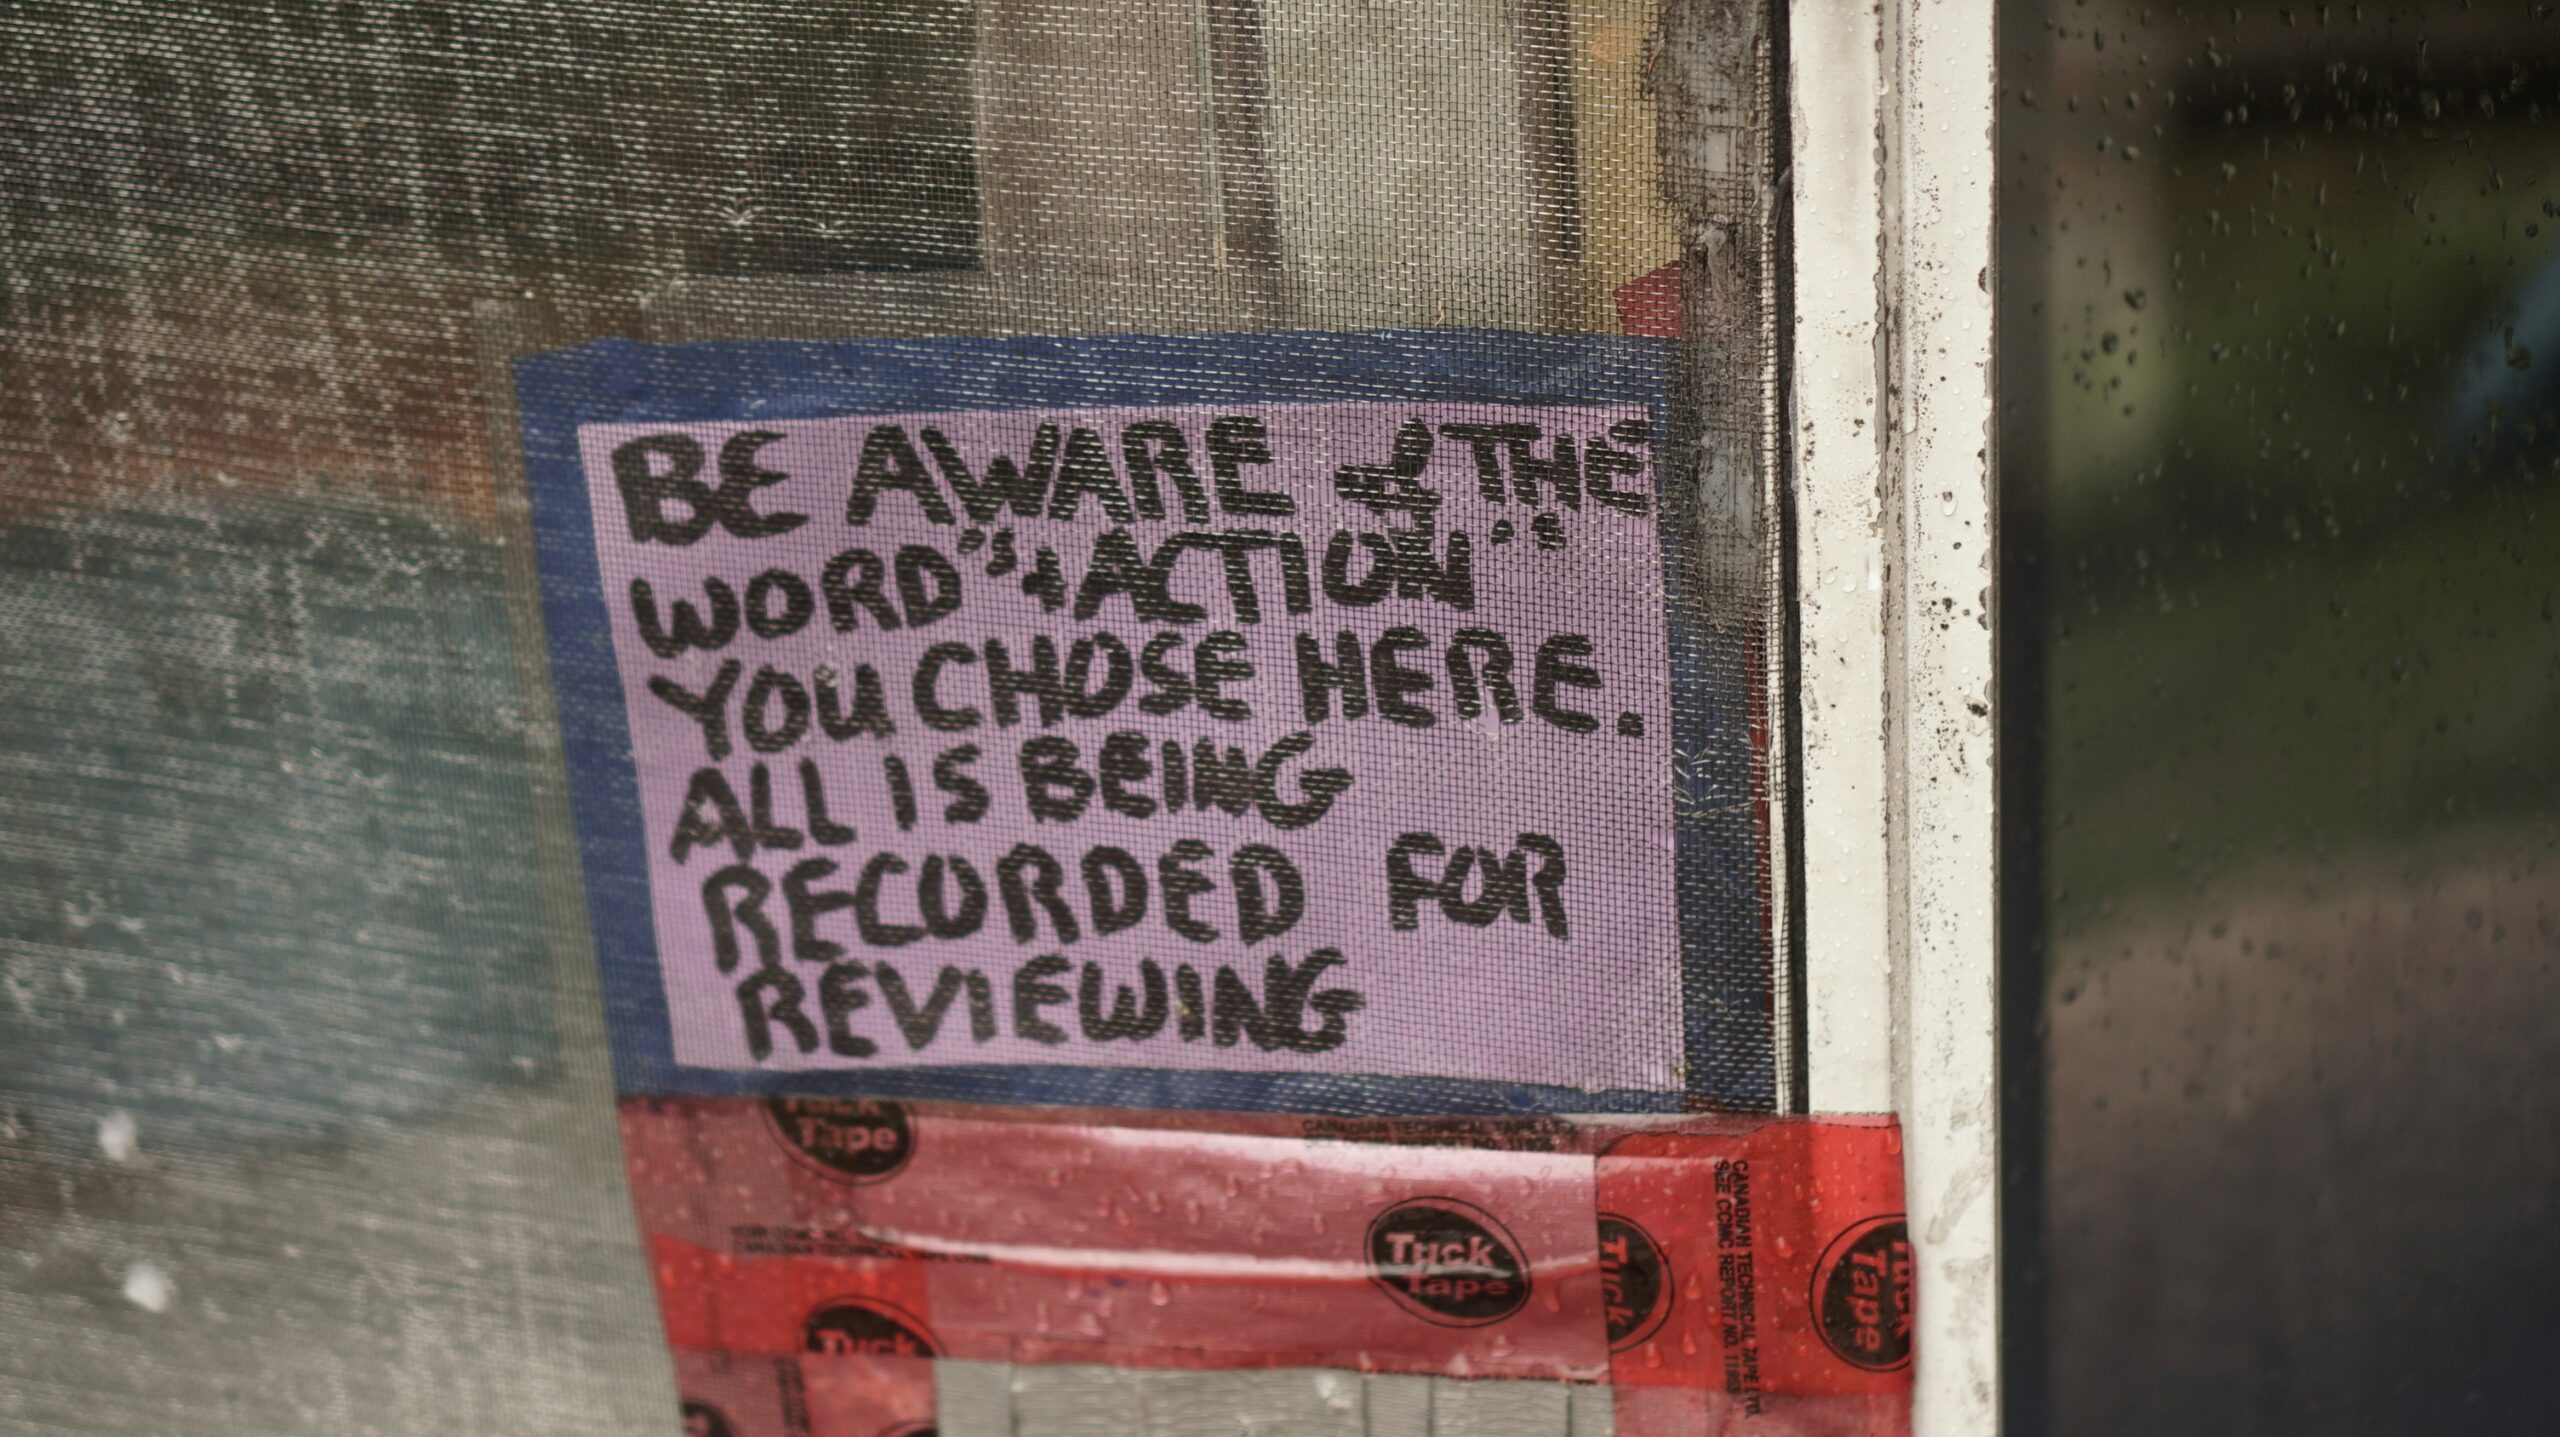 BE AWARE of THE
WORD"s + ACTION"s
YOU CHOSE HERE.
ALL IS BEING
RECORDED FOR
REVIEWING
Tuck
Tape
CANADIAN TECHNICAL TAPE LTD.
Tuck
Tape
Tuck
CANADIAN TECHNICAL TAPE LTD.
SEE CCMC REPORT NO. 11968
Tuck
Tape
CANADIAN TECHNICAL TAPE LTD.
Tuck